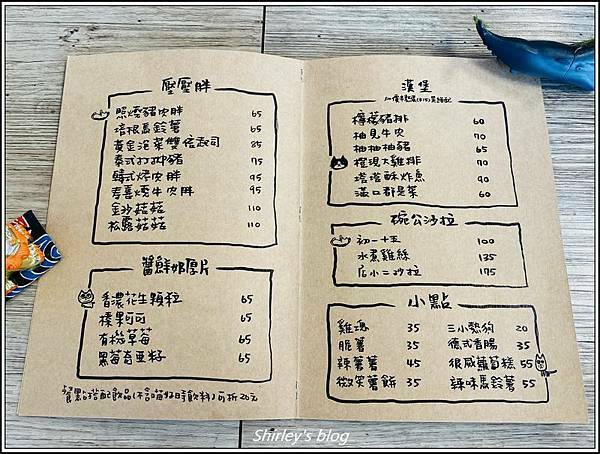 壓壓胖
照燒豬肉胖 65
培根馬鈴薯 65
黃金泡菜雙倍起司 85
泰式打拋豬 75
韓式燒肉胖 95
壽喜燒牛肉胖 95
金沙菇菇 110
松露菇菇 110
醬鮮奶厚片
香濃花生顆粒 65
榛果可可 65
有機草莓 65
黑莓奇亞籽 65
餐點搭配飲品(不含貓好時飲料)可折20元
漢堡
檸檬豬排 60
柚見牛肉 70
柚柚柚豬 65
椪現大雞排 70
塔塔酥炸魚 90
滿口群是菜 60
碗公沙拉
初一十五 100
水煮雞絲 135
店小二沙拉 175
小點
雞塊 35
脆薯 35
辣薯薯 45
微笑薯餅 35
三小熱狗 20
德式香腸 35
很威蘿蔔糕 55
辣味馬鈴薯 55
Shirley's blog